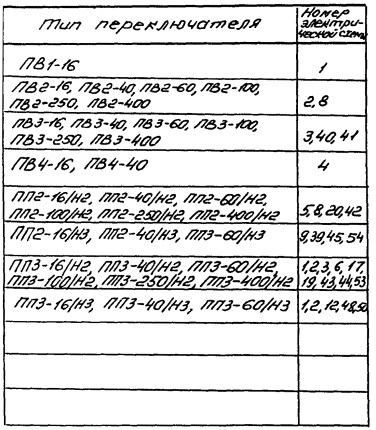 Тип переключателя
Номер электри-
ческой схемы
ПВ1-16
1
ПВ2-16, ПВ2-40, ПВ2-60, ПВ2-100,
ПВ2-250, ПВ2-400
2,8
ПВ3-16, ПВ3-40, ПВ3-60, ПВ3-100,
ПВ3-250, ПВ3-400
3,40,41
ПВ4-16, ПВ4-40
4
ПП2-16/Н2, ПП2-40/Н2, ПП2-60/Н2,
ПП2-100/Н2, ПП2-250/Н2, ПП2-400/Н2
5,8,20,42
ПП2-16/Н3, ПП2-40/Н3, ПП3-60/Н3
9,39,45,54
ПП3-16/Н2, ПП3-40/Н2, ПП3-60/Н2,
ПП3-100/Н2, ПП3-250/Н2, ПП3-400/Н2
1,2,3,6,17,
19,43,44,53
ПП3-16/Н3, ПП3-40/Н3, ПП3-60/Н3
1,2,12,48,50